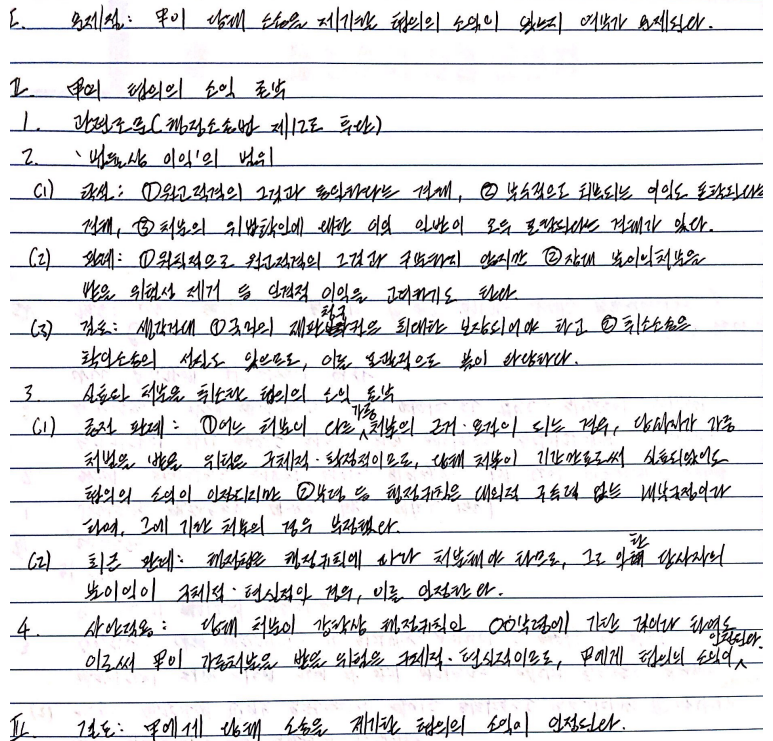 I. 문제점: 甲이 당해 소송을 제기할 협의의 소익이 있는지 여부가 문제된다.
II. 甲의 협의의 소익 존부
1. 관련조문(행정소송법 제12조 후단)
2. '법률상 이익'의 범위
(1) 학설: ①원고적격의 그것과 동일하다는 견해, ② 부수적으로 회복되는 이익도 포함된다는
견해, ③처분의 위법확인에 대한 이익 일반이 모두 포함된다는 견해가 있다.
(2) 판례: ①원칙적으로 원고적격의 그것과 구분하지 않지만 ②장래 불이익처분을
받을 위험성 제거 등 인격적 이익을 고려하기도 한다.
(3) 검토: 생각건대 ①국민의 재판청구권은 최대한 보장되어야 하고 ②취소소송은
확인소송의 성질도 있으므로, 이를 포괄적으로 봄이 타당하다.
3. 실효된 처분을 취소할 협의의 소익 존부
(1) 종전 판례: ①어느 처분이 다른 가중처분의 근거·요건이 되는 경우, 당사자가 가중
처벌을 받을 위험은 구체적·확정적이므로, 당해 처분이 기간만료로써 실효되었어도
협의의 소익이 인정되지만 ②부령 등 행정규칙은 대외적 구속력 없는 내부규정이라
하여, 그에 기한 처분의 경우 부정했다.
(2) 최근 판례: 행정청은 행정규칙에 따라 처분해야 하므로, 그로 인한 당사자의
불이익이 구체적·현실적인 경우, 이를 인정한다.
4. 사안적용: 당해 처분이 강학상 행정규칙인 OO부령에 기한 것이라 하여도
이로써 甲이 가중처분을 받을 위험은 구체적·현실적이므로, 甲에게 협의의 소익이 인정된다.
III. 결론: 甲에게 당해 소송을 제기할 협의의 소익이 인정된다.